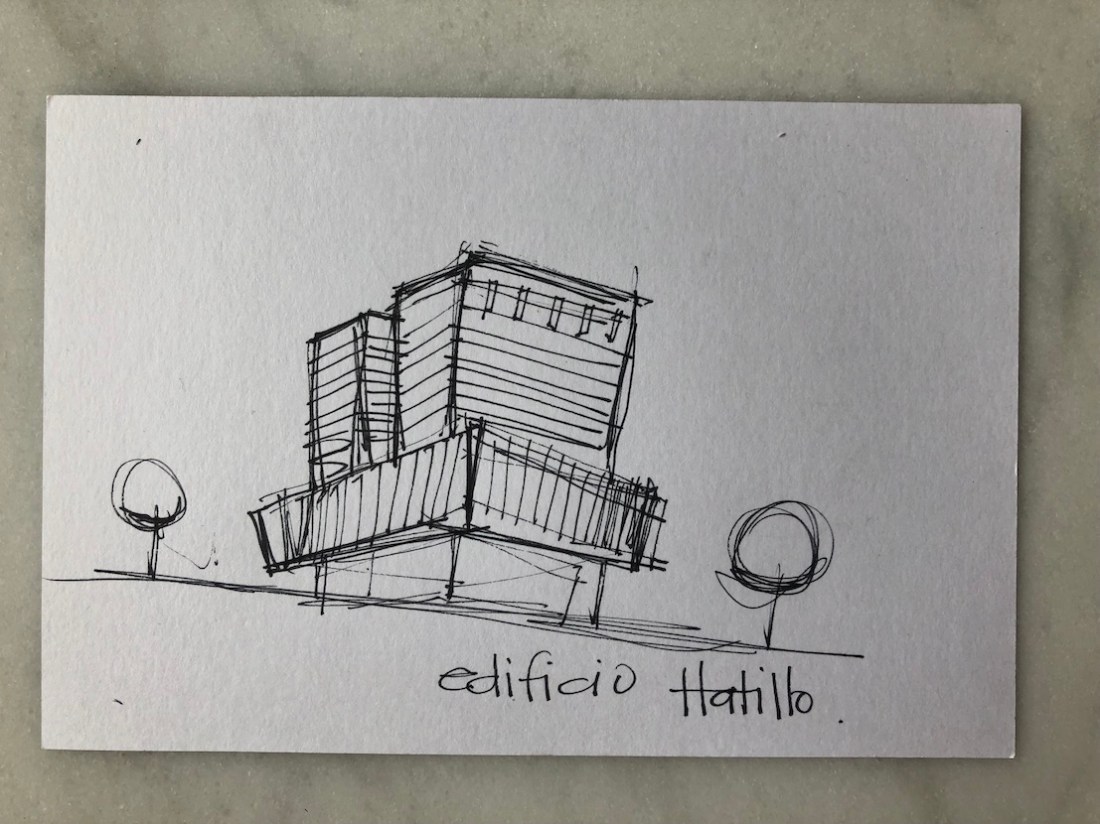 edificio Hatillo.